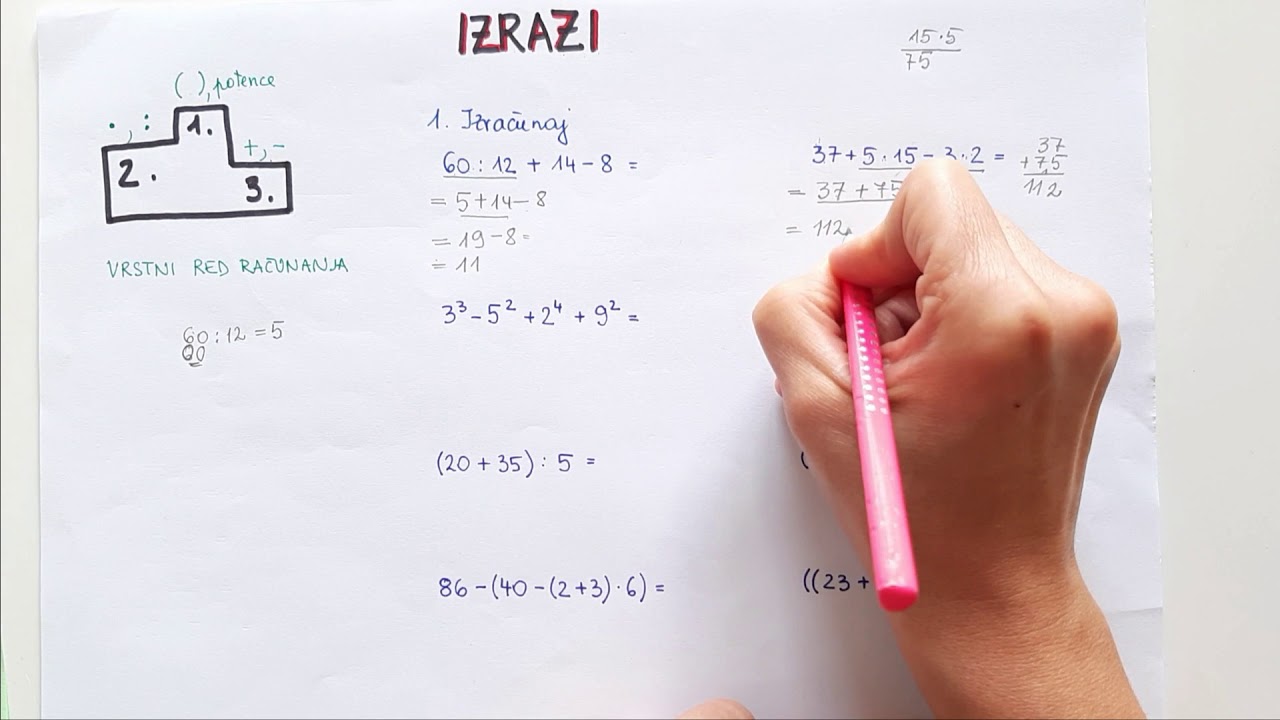 IZRAZI
( ), potence
· , :
+, -
1.
2.
3.
VRSTNI RED RAČUNANJA
60 : 12 = 5
00
1. Izračunaj
60 : 12 + 14 - 8 =
= 5 + 14 - 8
= 19 - 8 =
= 11
3³ - 5² + 2⁴ + 9² =
(20 + 35) : 5 =
86 - (40 - (2 + 3) · 6) =
15 · 5
75
37 + 5 · 15 - 3 · 2 =
= 37 + 75
= 112
37
+ 75
112
(
((23 +